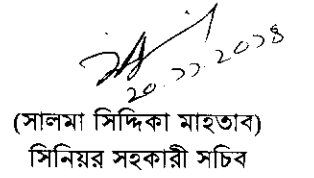 ২০.১১.২০১৪
(সালমা সিদ্দিকা মাহতাব)
সিনিয়র সহকারী সচিব